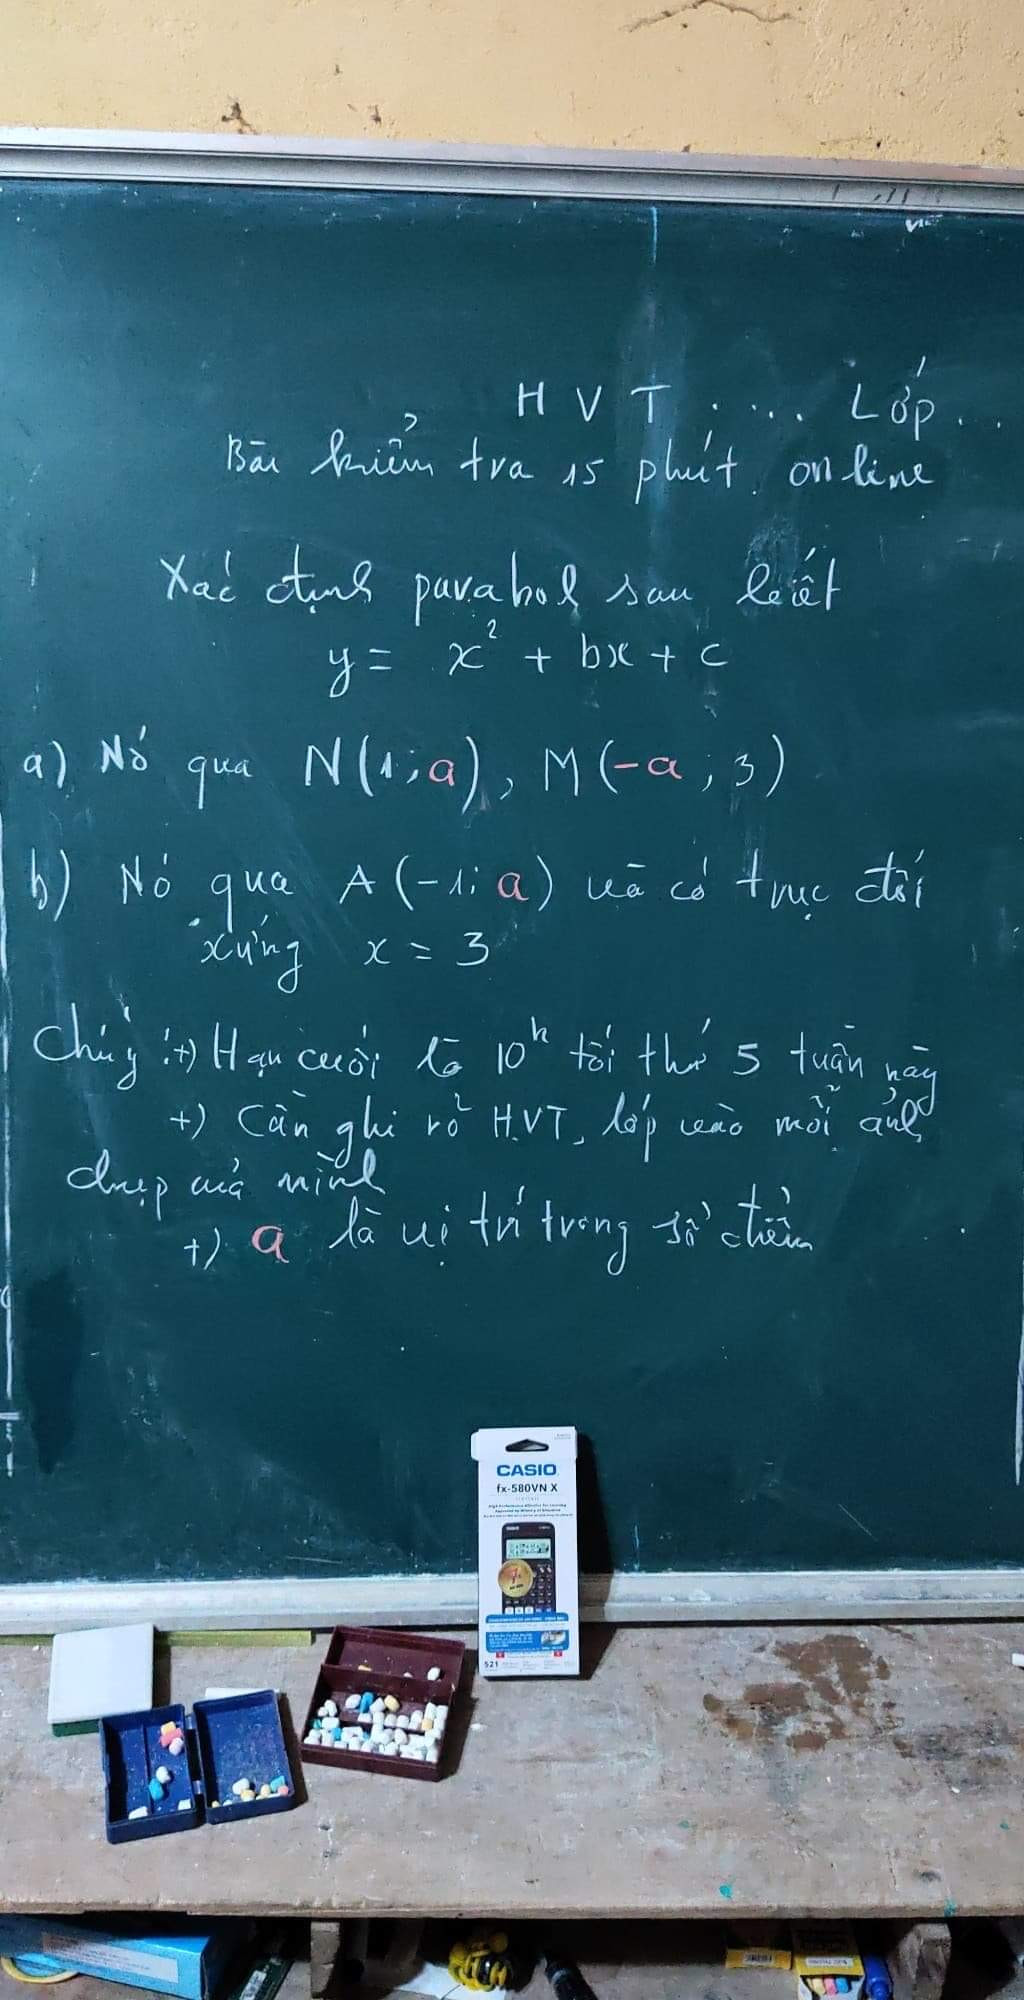 H V T ..... Lớp ...
Bài kiểm tra 15 phút. online
Xác định parabol sau biết
y = x² + bx + c
a) Nó qua N(1; a), M(-a; 3)
b) Nó qua A(-1; a) và có trục đối
xứng x = 3
Chú ý: +) Hạn cuối là 10h tối thứ 5 tuần này
+) Cần ghi rõ H.VT, lớp vào mỗi ảnh
chụp của mình
+) a là vị trí trong sổ điểm
CASIO
fx-580VN X
521